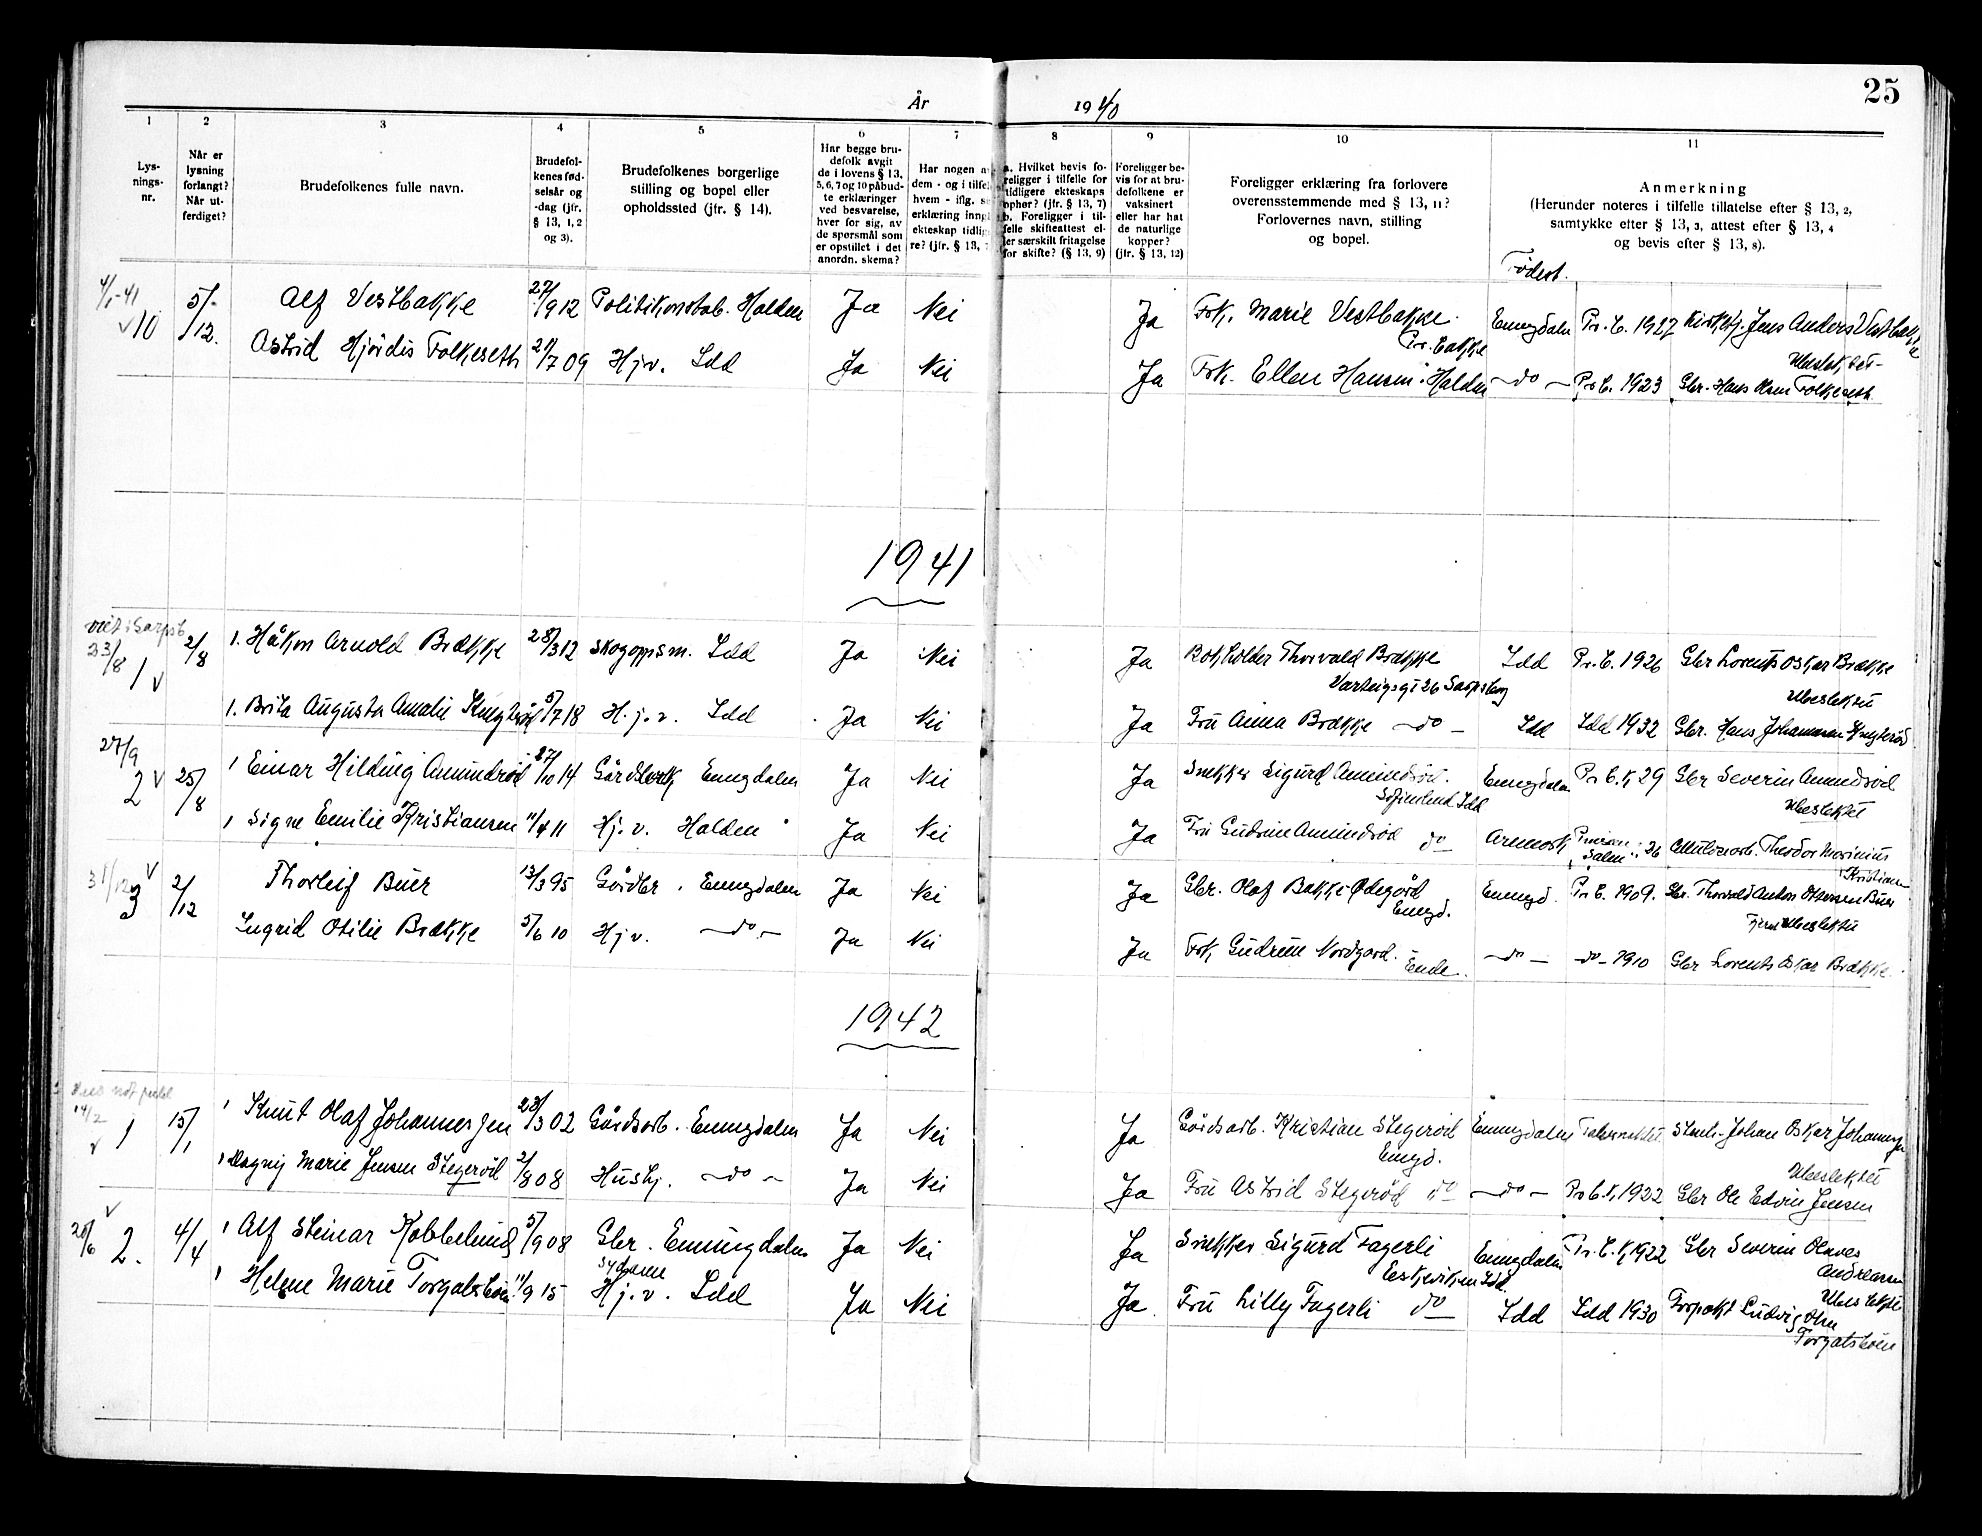 25
År 1940
1 2 3 4 5 6 7 8 9 10 11
Lys-
nings-
nr.
Når er
lysning
forlangt?
Når ut-
ferdiget?
Brudefolkenes fulle navn.
Brudefol-
kenes fød-
selsår og
-dag (jfr.
§ 13, 1, 2
og 3).
Brudefolkenes borgerlige
stilling og bopel eller
opholdssted (jfr. § 14).
Har begge bru-
defolk avgit
de i lovens § 13,
5, 6, 7 og 10 påbud-
te erklæringer
ved besvarelse,
hver for sig, av
de spørsmål som
er opstillet i det
anordn. skema?
Har nogen a
dem - og i tilfel
hvem - iflg. s
erklæring inng
ekteskap tidlig
re? (jfr. § 13, 7
a. Hvilket bevis fo-
religger i tilfelle for
tidligere ekteskaps
ophør? (jfr. § 13, 7)
b. Foreligger i til-
felle skifteattest el-
ler særskilt fritagelse
for skifte? (§ 13, 9)
Foreligger be-
vis for at bru-
defolkene er
vaksinert
eller har hat
de naturlige
kopper?
(jfr. § 13, 12)
Foreligger erklæring fra forlovere
overensstemmende med § 13, 11?
Forlovernes navn, stilling
og bopel.
Anmerkning
(Herunder noteres i tilfelle tillatelse efter § 13, 2,
samtykke efter § 13, 3, attest efter § 13, 4
og bevis efter § 13, 8).
Fødest.
4/1-41 10 5/12. Alf Vestbakke 27/9 12 Politikonstab. Halden Ja Nei Ja Frk. Marie Vestbakke. Enngdalen Pr. B. 1927 Kirketj. Jens Anders Vestbakke
Pr. Bakke
Ubeslektet-
Astrid Hjørdis Folkeseth 21/7 09 Hj.v. Idd Ja Nei Ja Frk. Ellen Hansen. Halden -do- Pr. B. 1923 Gbr. Hans Olsen Folkeseth
1941
viet i Sarpsb
23/8 1 2/8 1. Håkon Arnold Brække 28/3 12 Skogoppsm. Idd Ja Nei Ja Thorvald Brække Idd Pr. B. 1926 Gbr Lorents Oskar Brække
Varteigsgt 26 Sarpsborg
Ubeslektet
1. Brita Augusta Amalie 5/7 18 H.j.v. Idd Ja Nei Ja Fru Anna Brække -do- Idd Idd 1932 Gbr. Hans Johannsen
27/9 2 25/8 1 Einar Hilding Amundrød 27/10 14 Enngdalen Ja Nei Ja Snekker Sigurd Amundrød. Enngdalen Pr. B. K 29 Gbr Severin Amundrød
Idd
Ubeslektet
1 Signe Emilie Kristiansen 11/4 11 Hj.v. Halden Ja Nei Ja Fru Gudrun Amundrød do Aremark 26 Theodor Marinius
Kristian
31/12 3 2/12 Thorleif Buer 13/3 95 Gårdbr. Enngdalen Ja Nei Ja Gbr. Olaf Bakke Ødegård Enngd. Pr. B. 1909. Gbr. Thorvald Anton Olsen Buer
Enngd.
Fjernt Ubeslektet
Ingrid Otilie Brække 5/6 10 Hjv. -do- Ja Nei Ja Frk. Gudrun Nordgard. -do- -do- 1910 Gbr Lorents Oskar Brække.
1942
14/2 1 15/1 1 Knut Olaf Johannesen 23/3 02 Gårdsarb. Enngdalen Ja Nei Ja Gårdsarb. Kristian Stegerød Enngdalen Johan Oskar Johannesen
Enngd.
Ubeslektet
1 Dagny Marie Jensen Stegerød 2/8 08 Hushj. -do- Ja Nei Ja Fru Astrid Stegerød do -do- Pr. B. K, 1922 Gbr Ole Edvin Jensen
20/6 2. 4/4 1 Alf Steinar Kobbelund 5/9 08 Gbr. Enningdalen Ja Nei Ja Snekker Sigurd Fagerli Enngdalen Pr. B. K 1922 Gbr Severin Olaves
Andreassen
Eskeviken Idd.
Ubeslektet
1 Helene Marie Torgalsbøen 11/9 15 Hj.v. Idd Ja Nei Ja Fru Lilly Fagerli do Idd Idd 1930 Forpakt Ludvig Olsen
Torgalsbøen